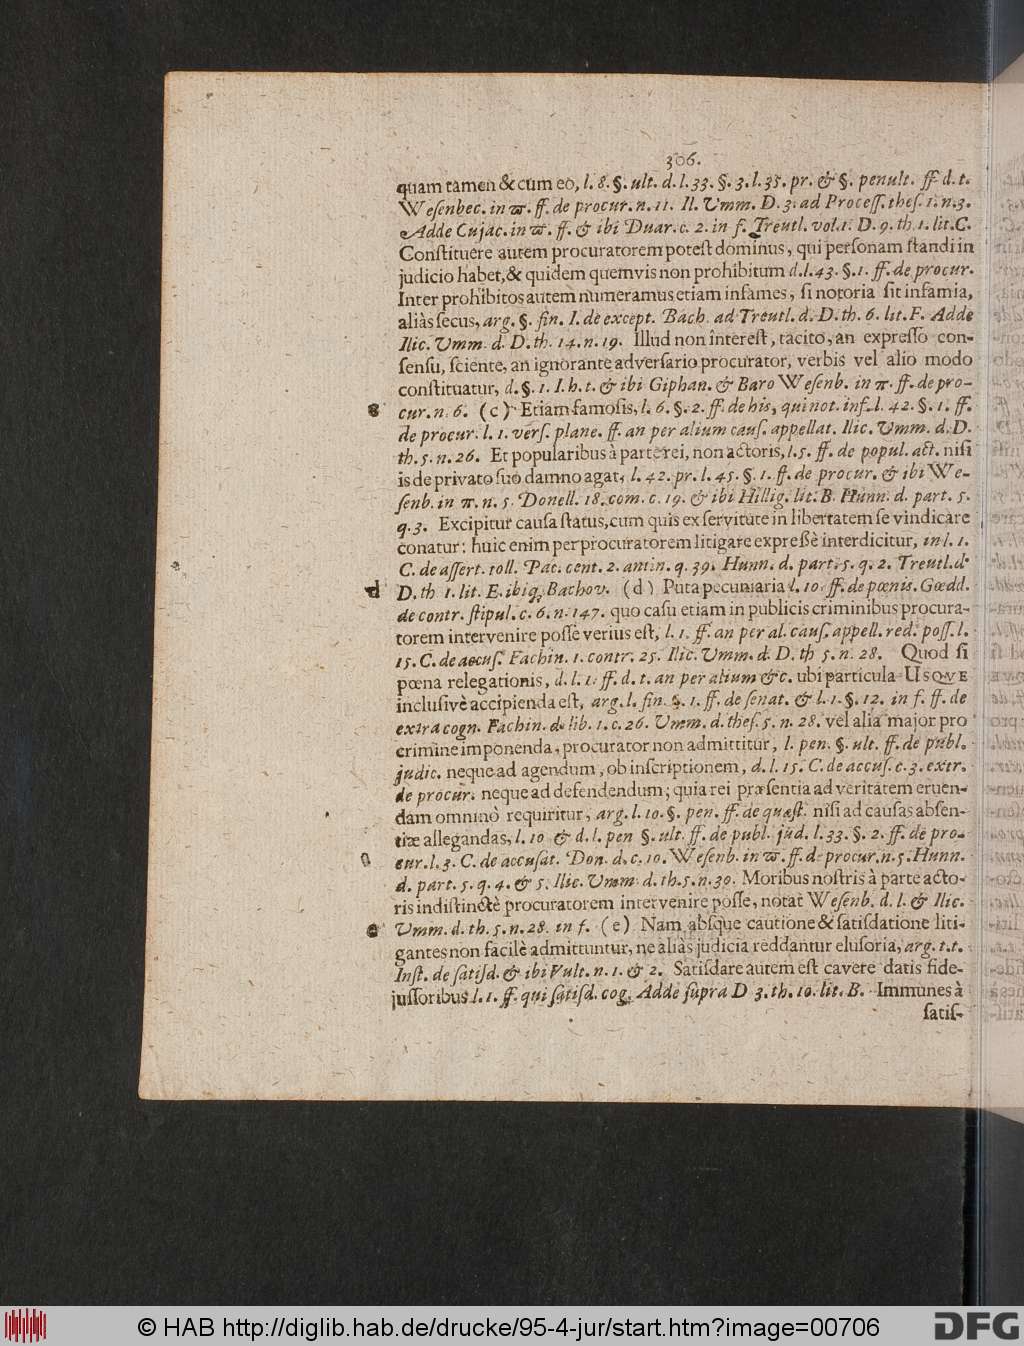 306.
quam tamen & cum eo, l. 8. §. ult. d. l. 33. §. 3. l. 35. pr. & §. penult. ff. d. t.
Wesenbec. in ϖ. ff. de procur. n. 11. Il. Umm. D. 3. ad Process. thes. 1. n. 3.
Adde Cujac. in ϖ. ff. & ibi Duar. c. 2. in f. Treutl. vol. 1. D. 9. th. 1. lit. C.
Constituere autem procuratorem potest dominus, qui personam standi in
judicio habet, & quidem quemvis non prohibitum d. l. 43. §. 1. ff. de procur.
Inter prohibitos autem numeramus etiam infames, si notoria sit infamia,
aliàs secus, arg. §. fin. I. de except. Bach. ad Treutl. d. D. th. 6. lit. F. Adde
Ilic. Umm. d. D. th. 14. n. 19. Illud non interest, tacito, an expresso con-
sensu, sciente, an ignorante adversario procurator, verbis vel alio modo
constituatur, d. §. 1. I. h. t. & ibi Giphan. & Baro Wesenb. in π. ff. de pro-
cur. n. 6. (c) Etiam famosis, l. 6. §. 2. ff. de his, qui not. inf. l. 42. §. 1. ff.
de procur. l. 1. vers. plane. ff. an per alium caus. appellat. Ilic. Umm. d. D.
th. 5. n. 26. Et popularibus à parte rei, non actoris, l. 5. ff. de popul. act. nisi
is de privato suo damno agat, l. 42. pr. l. 45. §. 1. ff. de procur. & ibi We-
senb. in π. n. 5. Donell. 18. com. c. 19. & ibi Hillig. lit. B. Hunn. d. part. 5.
q. 3. Excipitur causa status, cum quis ex servitute in libertatem se vindicare
conatur: huic enim per procuratorem litigare expreßè interdicitur, in l. 1.
C. de assert. toll. Pac. cent. 2. antin. q. 39. Hunn. d. part. 5. q. 2. Treutl. d.
d D. th. 1. lit. E. ibiq; Bachov. (d) Puta pecuniaria l. 10. ff. de pœnis. Gœdd.
de contr. stipul. c. 6. n. 147. quo casu etiam in publicis criminibus procura-
torem intervenire posse verius est, l. 1. ff. an per al. caus. appell. red. poss. l.
15. C. de accus. Fachin. 1. contr. 25. Ilic. Umm. d. D. th 5. n. 28. Quod si
pœna relegationis, d. l. 1. ff. d. t. an per alium &c. ubi particula USQVE
inclusivè accipienda est, arg. l. fin. §. 1. ff. de senat. & l. 1. §. 12. in f. ff. de
extra cogn. Fachin. d. lib. 1. c. 26. Umm. d. thes. 5. n. 28. vel alia major pro
crimine imponenda, procurator non admittitur, l. pen. §. ult. ff. de publ.
judic. neque ad agendum, ob inscriptionem, d. l. 15. C. de accus. c. 3. extr.
de procur. neque ad defendendum; quia rei præsentia ad veritatem eruen-
dam omninò requiritur, arg. l. 10. §. pen. ff. de quæst. nisi ad causas absen-
tiæ allegandas, l. 10 & d. l. pen §. ult. ff. de publ. jud. l. 33. §. 2. ff. de pro-
cur. l. 3. C. de accusat. Don. d. c. 10. Wesenb. in ϖ. ff. de procur. n. 5. Hunn.
d. part. 5. q. 4. & 5. Ilic. Umm. d. th. 5. n. 30. Moribus nostris à parte acto-
ris indistinctè procuratorem intervenire posse, notat Wesenb. d. l. & Ilic.
e Umm. d. th. 5. n. 28. in f. (e) Nam absque cautione & satisdatione liti-
gantes non facilè admittuntur, ne aliàs judicia reddantur elusoria, arg. t. t.
Inst. de satisd. & ibi Vult. n. 1. & 2. Satisdare autem est cavere datis fide-
jussoribus l. 1. ff. qui satisd. cog. Adde supra D 3. th. 10. lit. B. Immunes à
satis-
© HAB http://diglib.hab.de/drucke/95-4-jur/start.htm?image=00706
DFG